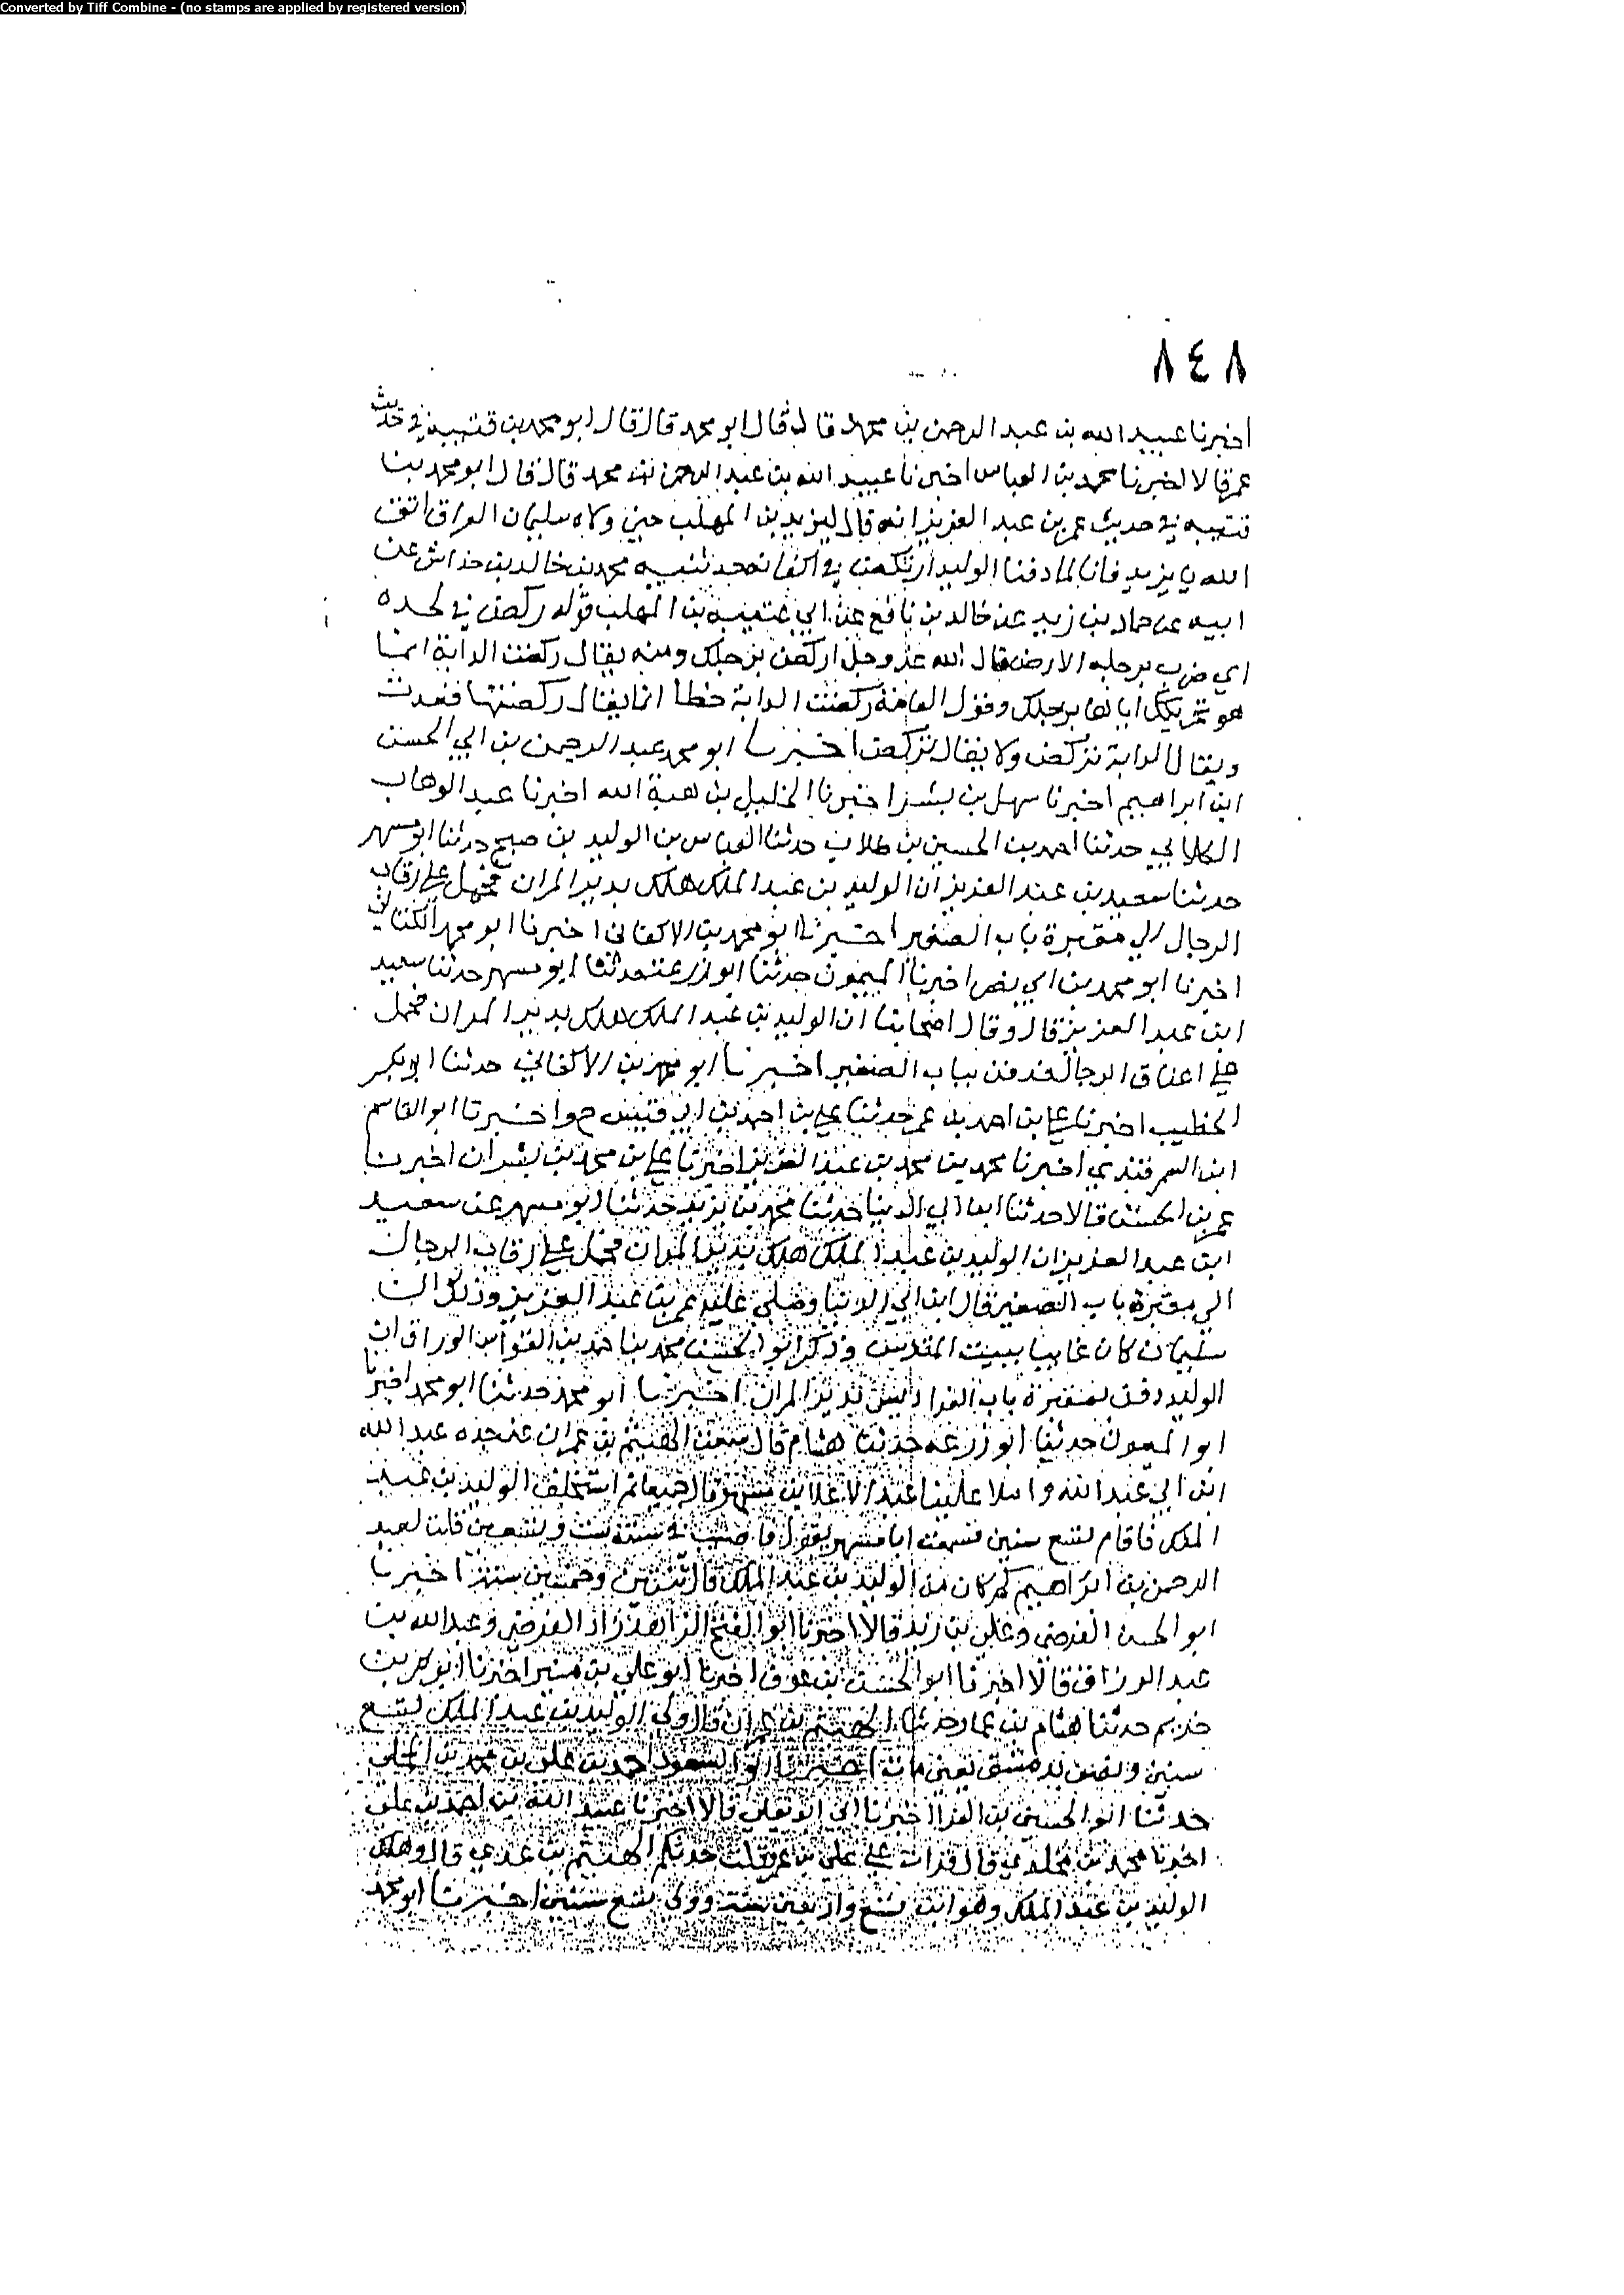 Converted by Tiff Combine - (no stamps are applied by registered version)
٨٤٨
اخبرنا عبيد الله بن عبد الرحمن بن محمد قال قال ابو محمد قال قال ابو محمد بن قتيبة في حديث
عمر قالا اخبرنا محمد بن العباس اخبرنا عبيد الله بن عبد الرحمن بن محمد قال قال ابو محمد بن
قتيبه في حديث عمر بن عبد العزيز انه قال ليزيد بن المهلب حين ولاه سليمان العراق اتق
الله يا يزيد فانا لما دفنا الوليد ارتكض في اكفانه حدثنيه محمد بن خالد بن خداش عن
ابيه عن حماد بن زيد عن خالد بن نافع عن ابي عتيبة بن المهلب قوله ركض في لحده
اي ضرب برجله الارض قال الله عز وجل اركض برجلك ومنه يقال ركضت الدابة انما
هو تحريكك اياها برجلك وقول العامة ركضت الدابة خطا انما يقال ركضتها فعدت
ويقال الدابة تركض ولا يقال تركض اخبرنا ابو محمد عبد الرحمن بن ابي الحسن
ابن ابراهيم اخبرنا سهل بن بشر اخبرنا الخليل بن هبة الله اخبرنا عبد الوهاب
الكلابي حدثنا احمد بن الحسين بن طلاب حدثنا العباس بن الوليد بن صبح حدثنا ابو مسهر
حدثنا سعيد بن عبد العزيز ان الوليد بن عبد الملك هلك بدير المران فحمل على رقاب
الرجال الى مقبرة باب الصغير اخبرنا ابو محمد بن الاكفاني اخبرنا ابو محمد الكتاني
اخبرنا ابو محمد بن ابي نصر اخبرنا الميمون حدثنا ابو زرعة حدثنا ابو مسهر حدثنا سعيد
ابن عبد العزيز قال وقال اصحابنا ان الوليد بن عبد الملك هلك بدير المران فحمل
على اعناق الرجال فدفن بباب الصغير اخبرنا ابو محمد بن الاكفاني حدثنا ابو بكر
الخطيب اخبرنا علي بن احمد بن عمر حدثنا علي بن احمد بن ابي قيس ح واخبرنا ابو القاسم
ابن السمرقندي اخبرنا محمد بن محمد بن عبد العزيز اخبرنا علي بن محمد بن بشران اخبرنا
عمر بن الحسن قالا حدثنا ابن ابي الدنيا حدثنا محمد بن يزيد حدثنا ابو مسهر عن سعيد
ابن عبد العزيز ان الوليد بن عبد الملك هلك بدير المران فحمل على رقاب الرجال
الى مقبرة باب الصغير قال ابن ابي الدنيا وصلى عليه عمر بن عبد العزيز وذلك ان
سليمان كان غايبا ببيت المقدس وذكر ابو الحسن محمد بن احمد بن القواس الوراق ان
الوليد دفن بمقبرة باب الفراديس بدير المران اخبرنا ابو محمد حدثنا ابو محمد اخبرنا
ابو الميمون حدثنا ابو زرعه حدثنا هشام قال سمعت الهيثم بن عمران عن جده عبد الله
ابن ابي عبد الله واملا علينا عبد الاعلا بن مسهر قالا جميعا ثم استخلف الوليد بن عبد
الملك فاقام تسع سنين فسمعت ابا مسهر يقول في سنة ست وتسعين قلت لعبد
الرحمن بن ابراهيم كم كان من الوليد بن عبد الملك قال وخمسين سنة اخبرنا
ابو الحسن الفرضي وعلي بن زيد قالا اخبرنا ابو الفتح الزاهد زاد الفرضي وعبد الله بن
عبد الرزاق قالا اخبرنا ابو الحسن ابن عوف اخبرنا ابو علي بن منير اخبرنا ابو بكر بن
خريم حدثنا هشام بن عمار حدثنا الهيثم بن عمران قال ولي الوليد بن عبد الملك تسع
سنين ونصف بدمشق يعني مات اخبرنا ابو السعود احمد بن علي بن محمد بن المجلي
حدثنا ابو الحسين بن الفرا اخبرنا ابي ابو يعلى قالا اخبرنا عبيد الله بن احمد بن علي
اخبرنا محمد بن مخلد قال قرات على علي بن عمرو قلت حدثكم الهيثم بن عدي قال وهلك
الوليد بن عبد الملك وهو ابن تسع واربعين سنة وولي تسع سنين اخبرنا ابو محمد